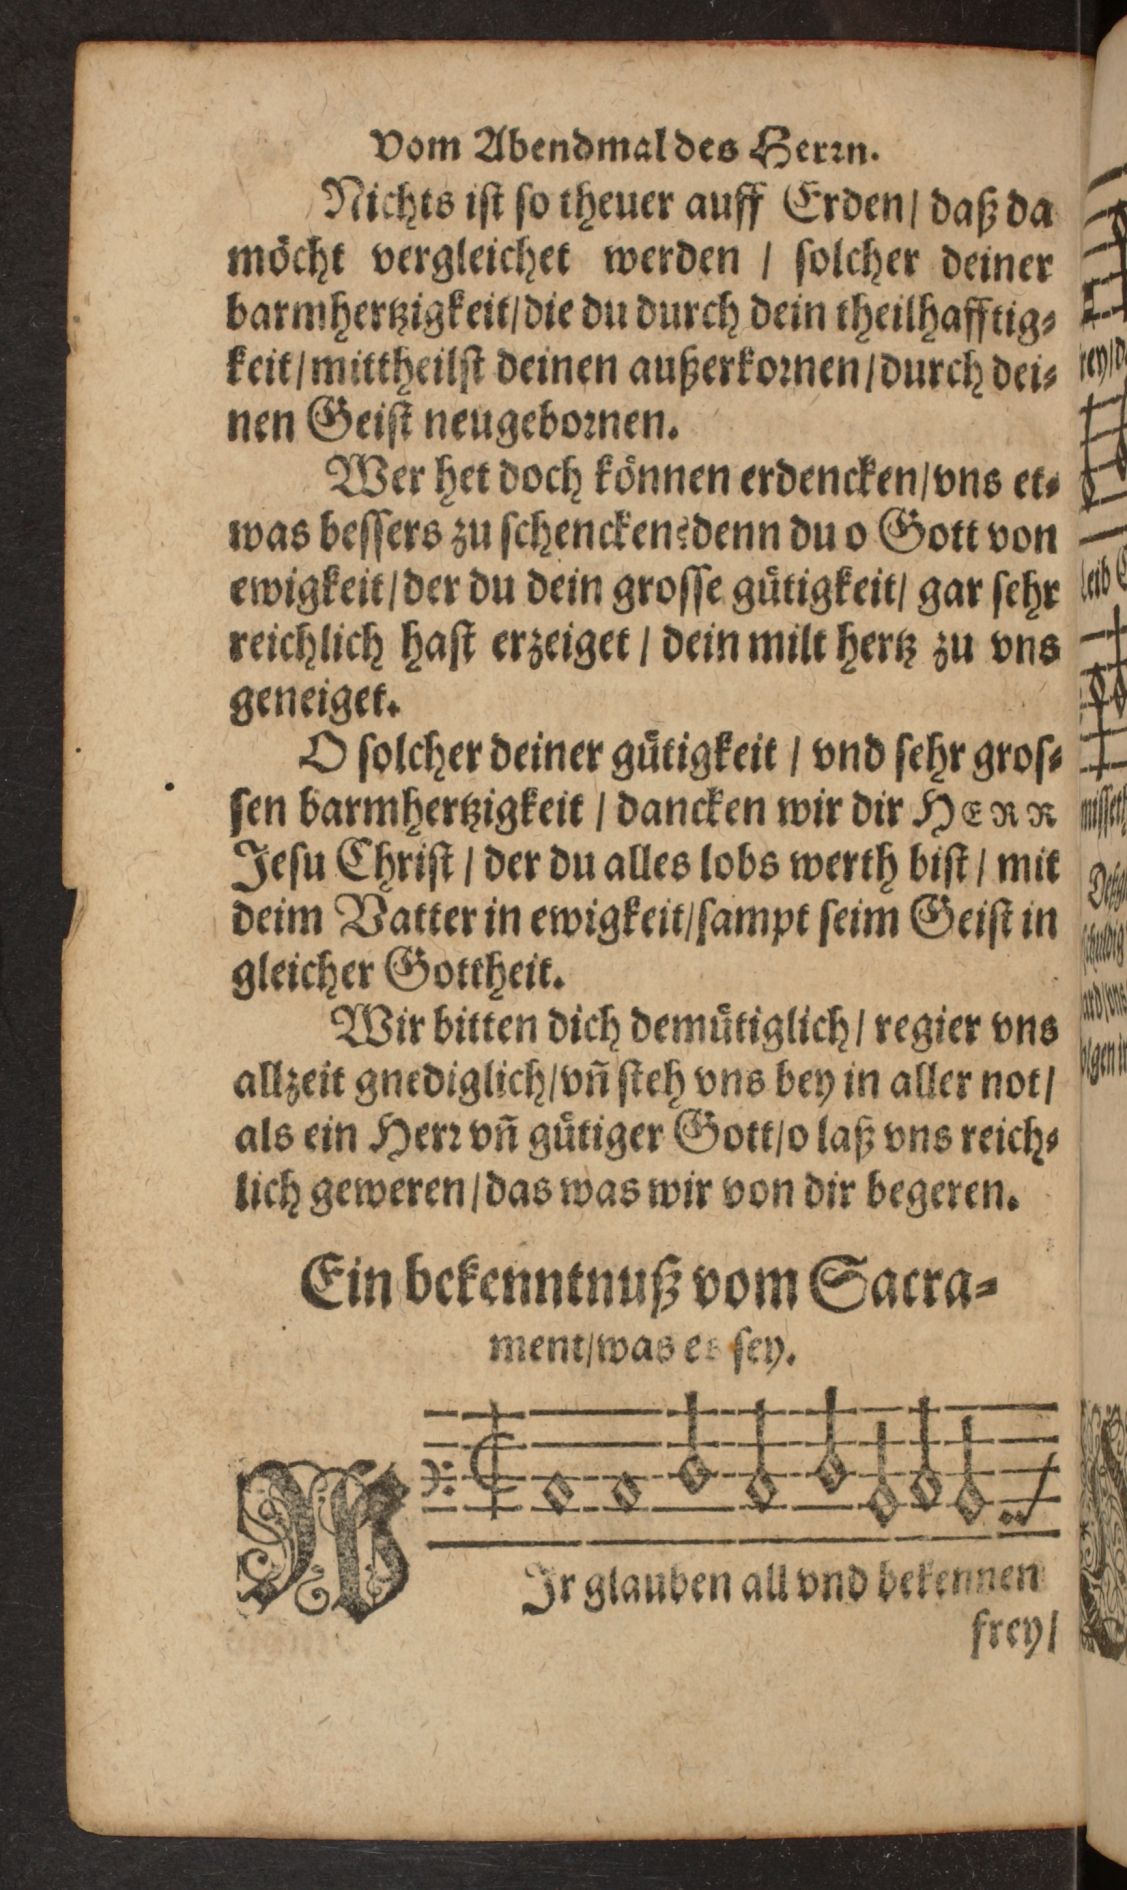 Vom Abendmal des Herrn.
Nichts ist so theuer auff Erden / daß da
möcht vergleichet werden / solcher deiner
barmhertzigkeit / die du durch dein theilhafftig⸗
keit / mittheilst deinen außerkornen / durch dei⸗
nen Geist neugebornen.
Wer het doch können erdencken / vns et⸗
was bessers zu schencken? denn du o Gott von
ewigkeit / der du dein grosse gütigkeit / gar sehr
reichlich hast erzeiget / dein milt hertz zu vns
geneiget.
O solcher deiner gütigkeit / vnd sehr gros⸗
sen barmhertzigkeit / dancken wir dir HERR
Jesu Christ / der du alles lobs werth bist / mit
deim Vatter in ewigkeit / sampt seim Geist in
gleicher Gottheit.
Wir bitten dich demütiglich / regier vns
allzeit gnediglich / vñ steh vns bey in aller not /
als ein Herr vñ gütiger Gott / o laß vns reich⸗
lich geweren / das was wir von dir begeren.
Ein bekenntnuß vom Sacra⸗
ment / was es sey.
WJr glauben all vnd bekennen
frey /